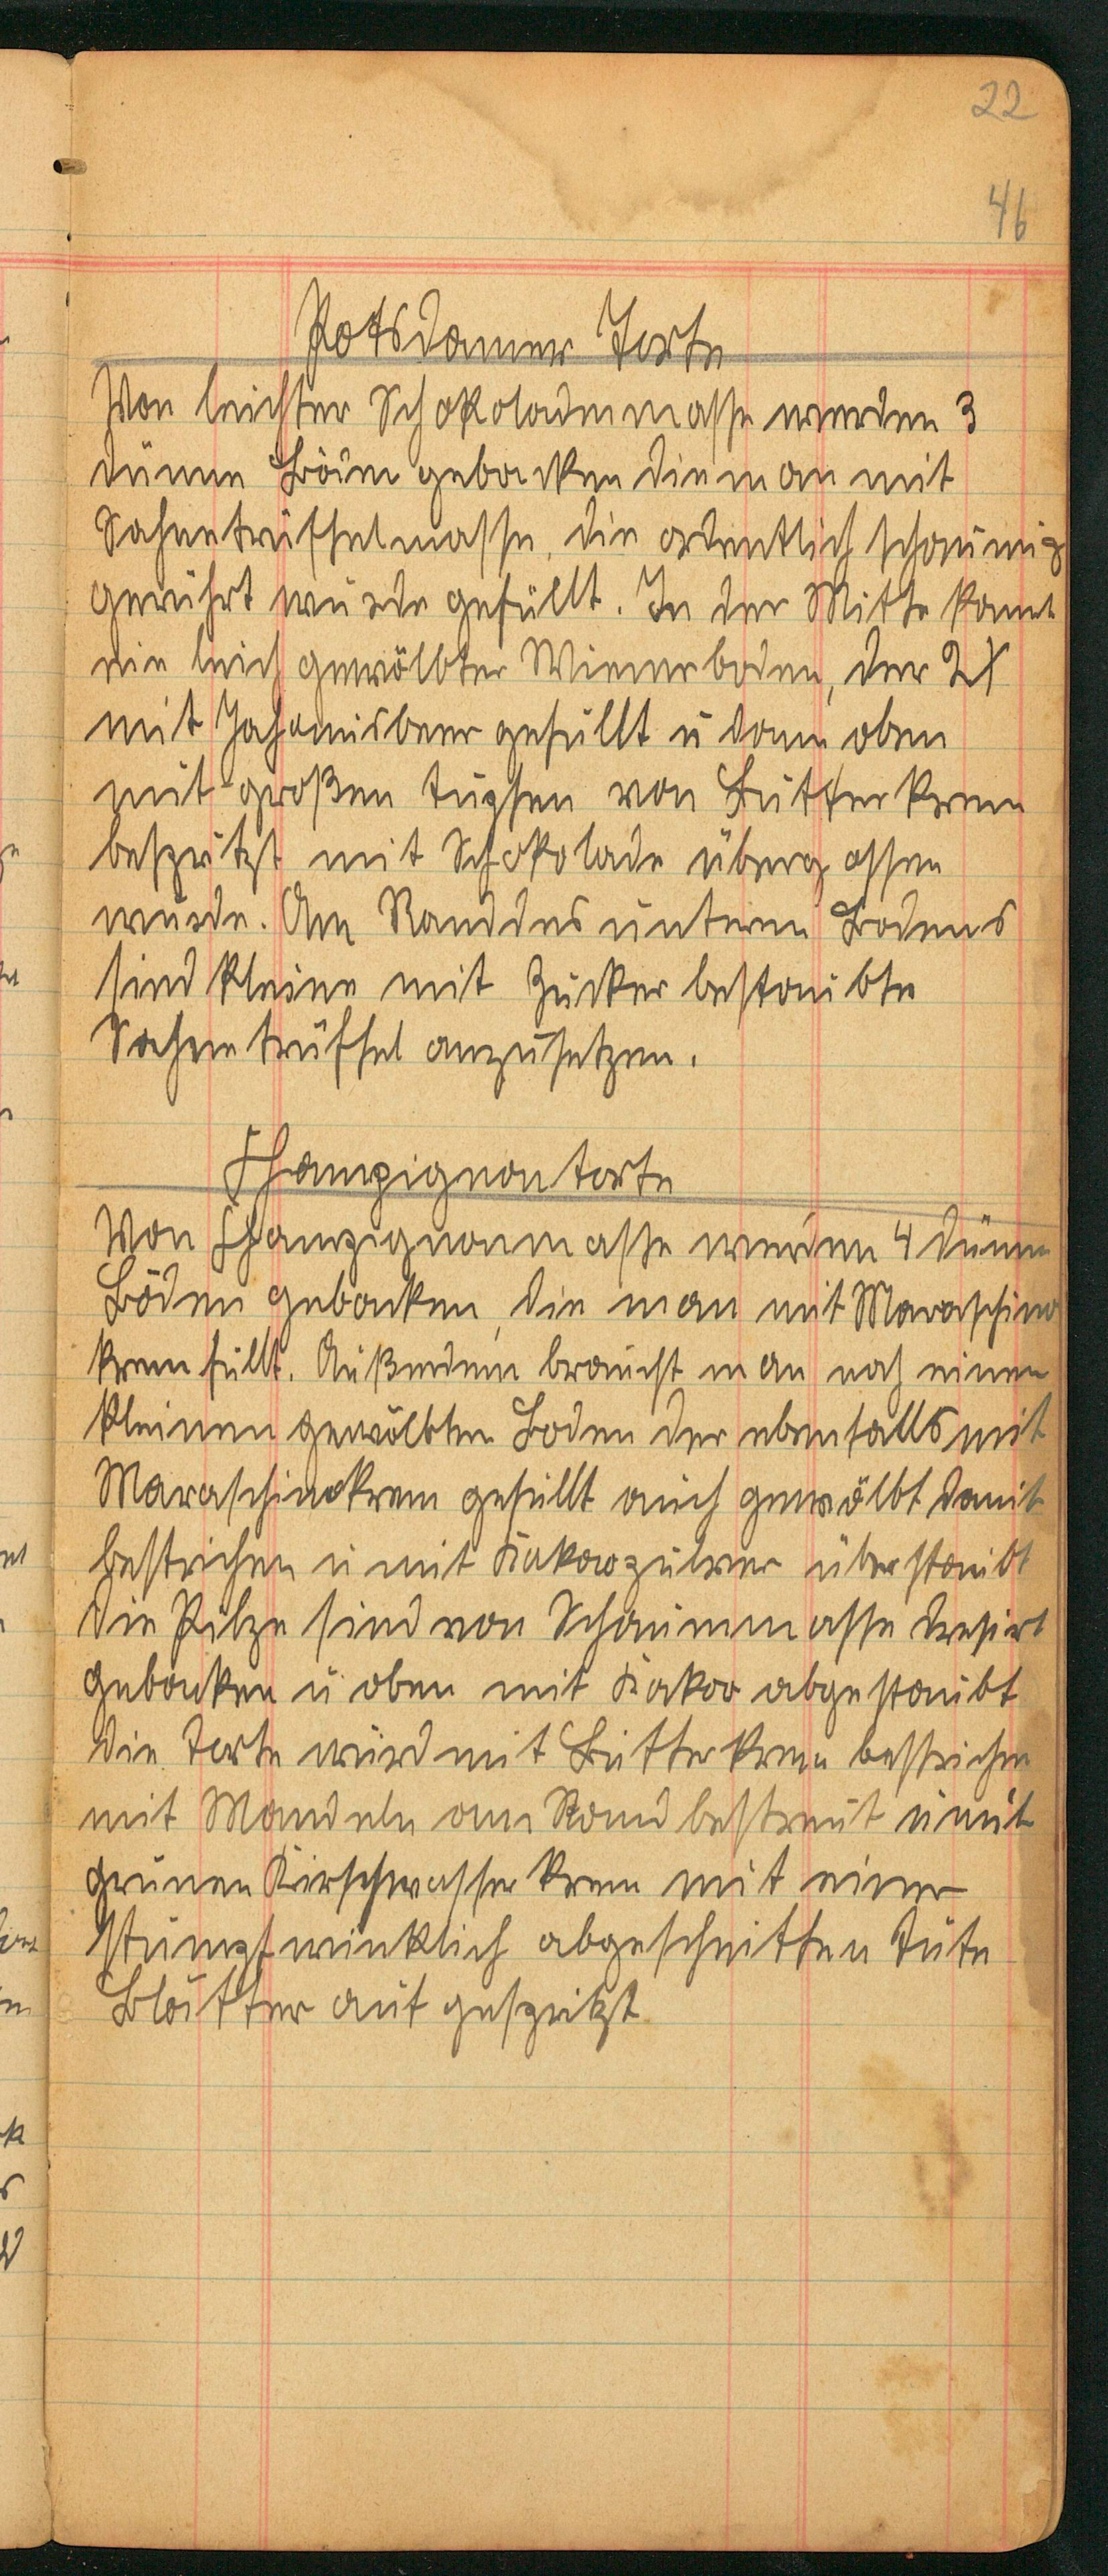 22
46
Potsdamer Torte
Von leichter Schokoladenmasse werden 3
dünne Böden gebacken die man mit
Sahnetrüffelmasse, die ordentlich schaumig
gerührt wurde gefüllt. In der Mitte kommt
ein leich gewölbter Wienerboden, der 2X
mit Johannisbeer gefüllt u dann oben
mit großen Tupfen von Butterkrem
bespritzt mit Schokolade übergossen
wurde. Am Rand des unteren Bodens
sind kleine mit Zucker bestaubte
Sahnetrüffel anzusetzen.
Champignontorte
Von Champignonmasse werden 4 dünne
Böden gebacken, die man mit Maraschino
krem füllt. Außerdem braucht man noch einen
kleinen gewölbten Boden der ebenfalls mit
Maraschinokrem gefüllt auch gewölbt damit
bestrichen u mit Kakaopulver überstaubt
die Pilze sind von Schaummasse dresirt
gebacken u oben mit Kakao abgestaubt
die Torte wird mit Butterkrem bestrichen
mit Mandeln am Rand bestreut u mit
grünen Kirschwasserkrem mit einer
stumpfwinklich abgeschnitten Tüte
Blätter auf gespritzt